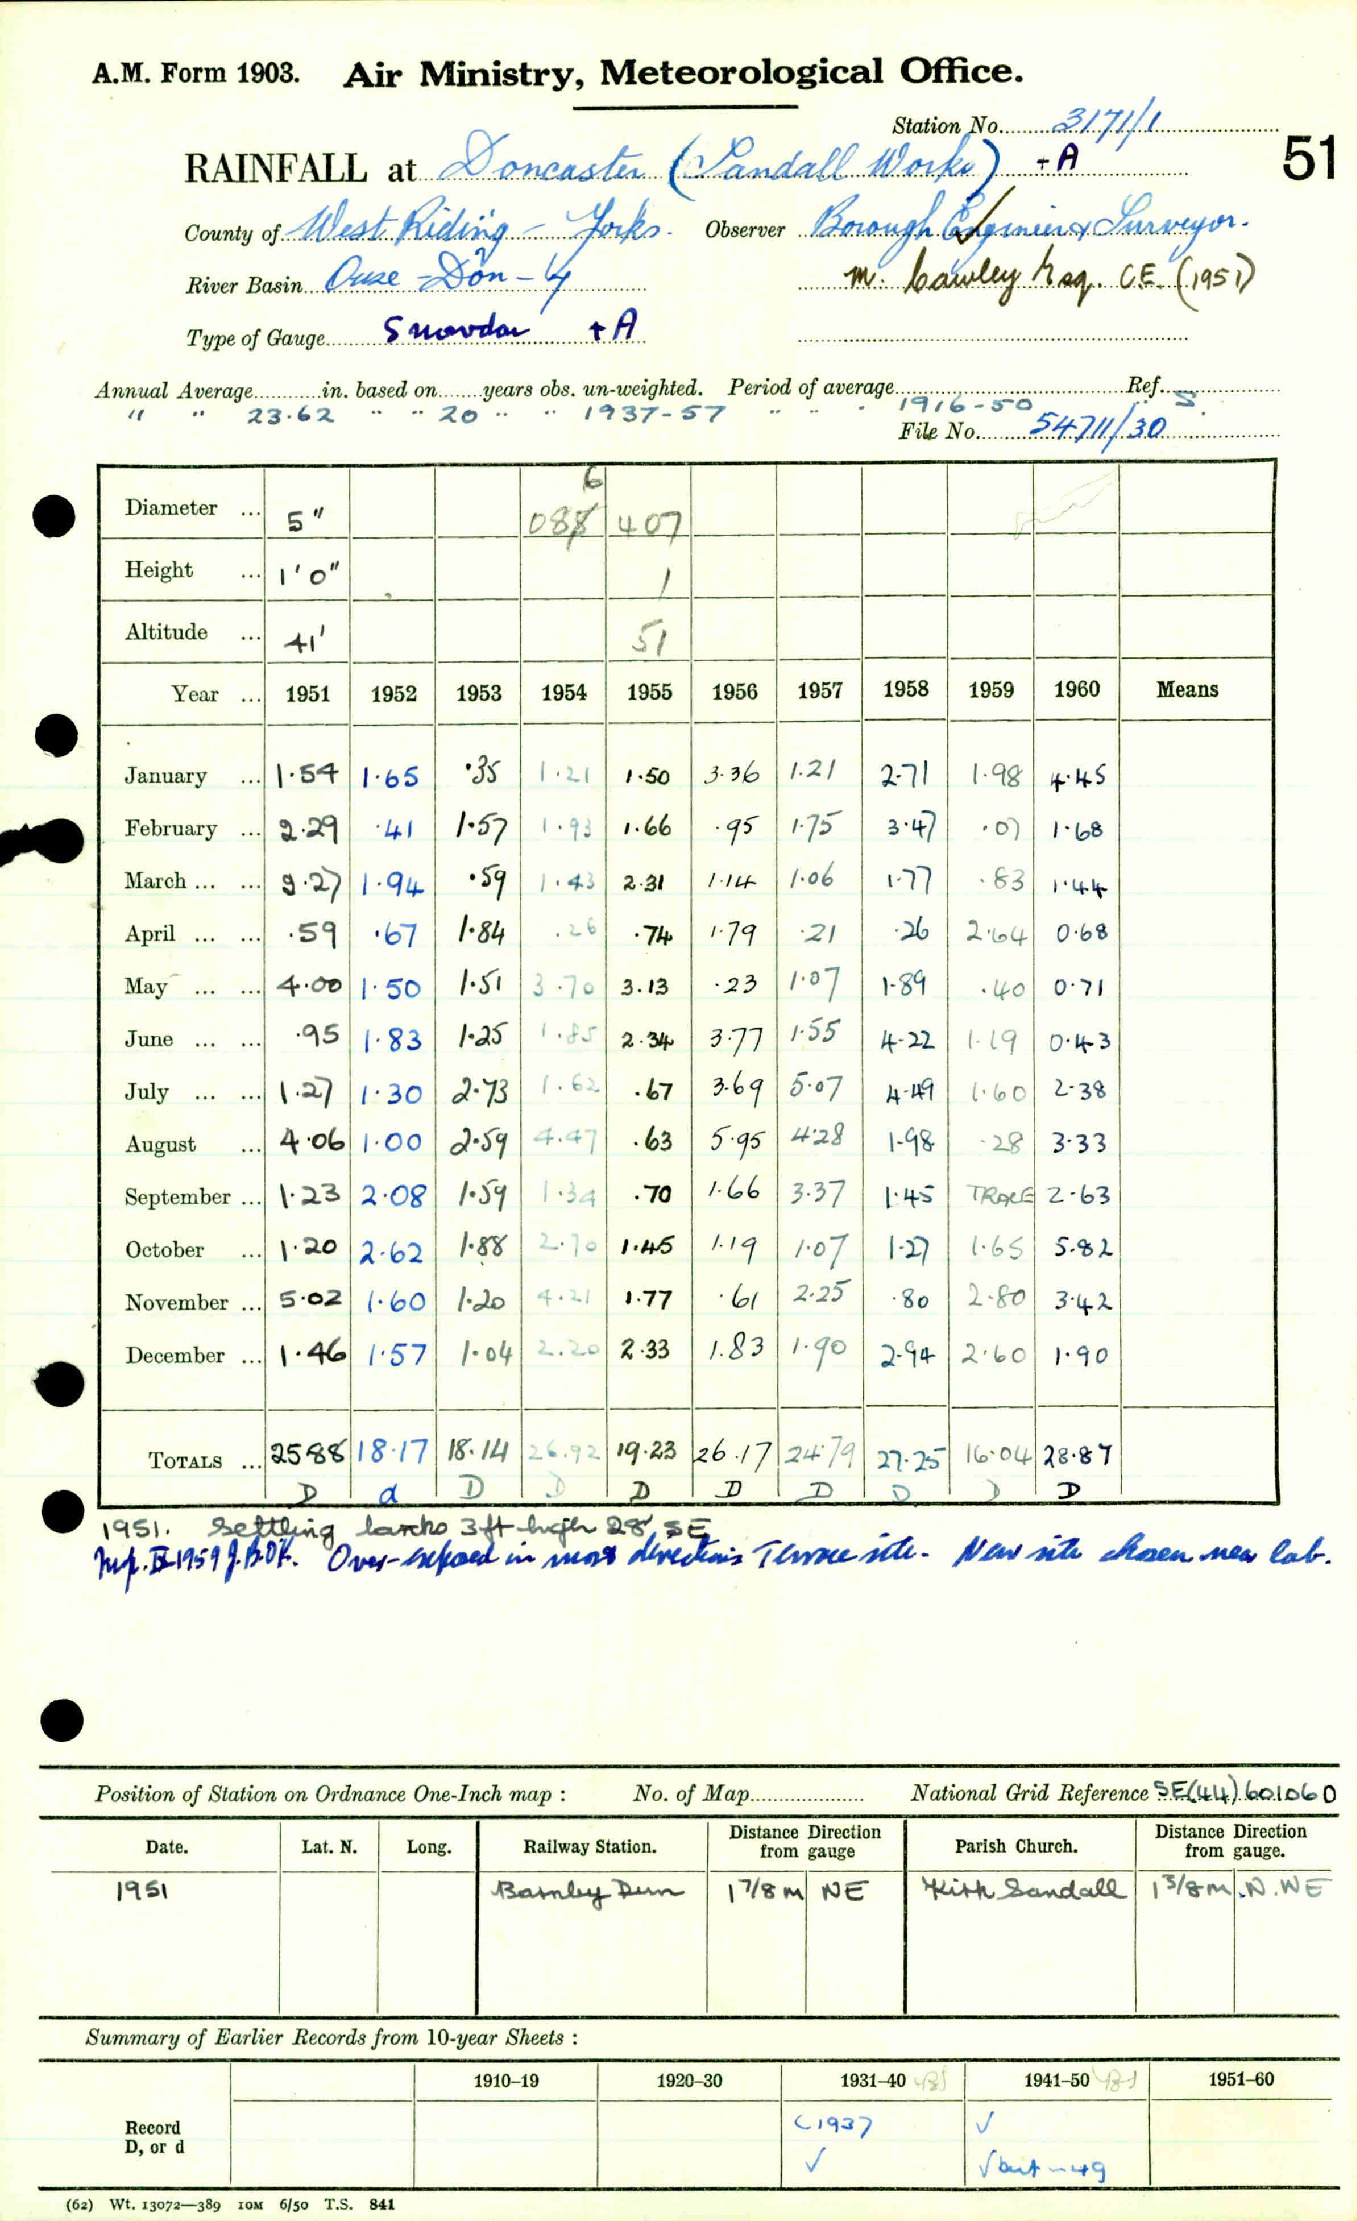 A.M. Form 1903. Air Ministry, Meteorological Office.
Station No. 3171/1
51
RAINFALL at Doncaster (Sandall Works) +A
County of West Riding – Yorks. Observer Borough Engineer & Surveyor.
River Basin Ouse – Don – 4 M. Cawley Esq. C.E. (1951)
Type of Gauge Snowdon +A
Annual Average in. based on years obs. un-weighted. Period of average Ref. S.
" " 23.62 " " 20 " " 1937-57 " " " 1916-50
File No. 54711/30
6
Diameter ... 5" 088 407
Height ... 1'0" 1
Altitude ... 41' 51
Year ... 1951 1952 1953 1954 1955 1956 1957 1958 1959 1960 Means
January ... 1.54 1.65 .35 1.21 1.50 3.36 1.21 2.71 1.98 4.45
February ... 2.29 .41 1.57 1.93 1.66 .95 1.75 3.47 .07 1.68
March ... ... 3.27 1.94 .59 1.43 2.31 1.14 1.06 1.77 .83 1.44
April ... ... .59 .67 1.84 .26 .74 1.79 .21 .26 2.64 0.68
May ... ... 4.00 1.50 1.51 3.70 3.13 .23 1.07 1.89 .40 0.71
June ... ... .95 1.83 1.25 1.85 2.34 3.77 1.55 4.22 1.19 0.43
July ... ... 1.27 1.30 2.73 1.62 .67 3.69 5.07 4.49 1.60 2.38
August ... 4.06 1.00 2.59 4.47 .63 5.95 4.28 1.98 .28 3.33
September ... 1.23 2.08 1.59 1.34 .70 1.66 3.37 1.45 TRACE 2.63
October ... 1.20 2.62 1.88 2.70 1.45 1.19 1.07 1.27 1.65 5.82
November ... 5.02 1.60 1.20 4.21 1.77 .61 2.25 .80 2.80 3.42
December ... 1.46 1.57 1.04 2.20 2.33 1.83 1.90 2.94 2.60 1.90
TOTALS ... 25.88 18.17 18.14 26.92 19.23 26.17 24.79 27.25 16.04 28.87
D d D D D D D D D D
1951. Settling tanks 3ft high 28' SE
Insp. IX 1959 Over-exposed in most directions Terrace site. New site chosen near lab.
Position of Station on Ordnance One-Inch map : No. of Map National Grid Reference SE(44)601060
Date. Lat. N. Long. Railway Station. Distance Direction from gauge Parish Church. Distance Direction from gauge.
1951 Barnby Dun 1 7/8 m NE Kirk Sandall 1 3/8 m N.WE
Summary of Earlier Records from 10-year Sheets :
1910–19 1920–30 1931–40 1941–50 1951–60
Record (1937 ✓
D, or d ✓ ✓ but – 49
(62) Wt. 13072—389 10M 6/50 T.S. 841